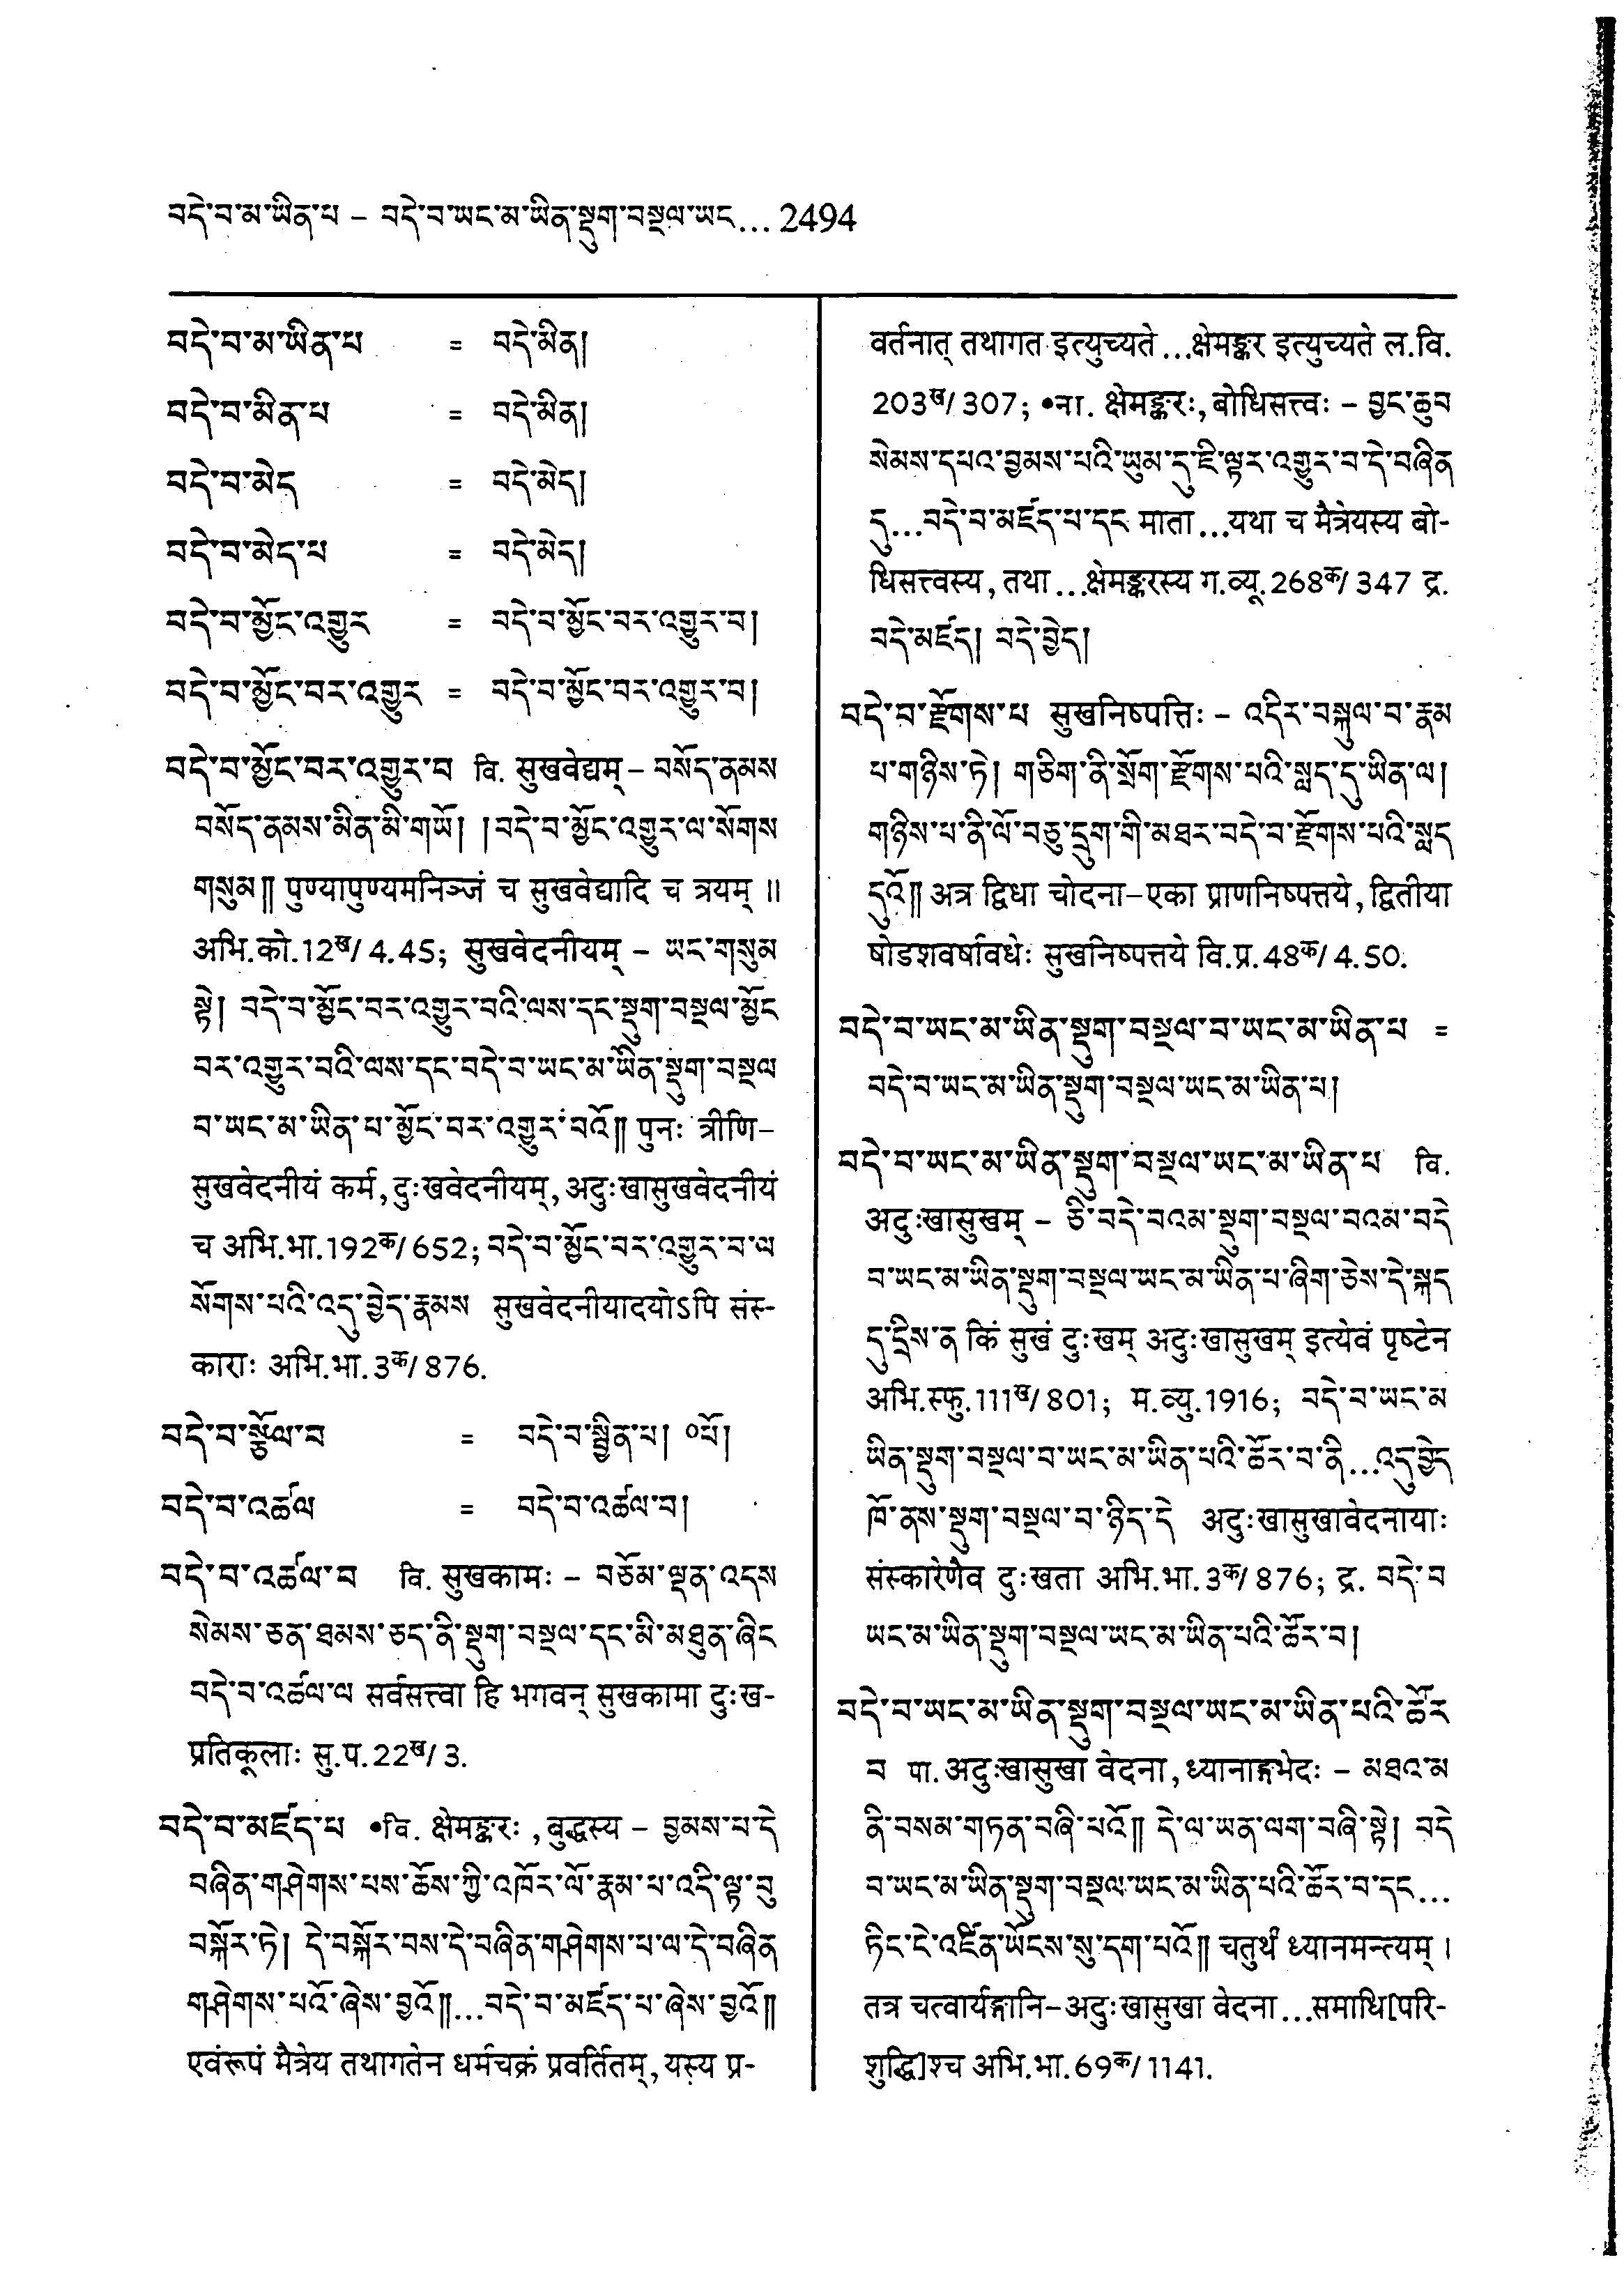 བདེ་བ་མ་ཡིན་པ – བདེ་བ་ཡང་མ་ཡིན་སྡུག་བསྔལ་ཡང... 2494
བདེ་བ་མ་ཡིན་པ = བདེ་མིན།
བདེ་བ་མིན་པ = བདེ་མིན།
བདེ་བ་མེད = བདེ་མེད།
བདེ་བ་མེད་པ = བདེ་མེད།
བདེ་བ་མྱོང་འགྱུར = བདེ་བ་མྱོང་བར་འགྱུར་བ།
བདེ་བ་མྱོང་བར་འགྱུར = བདེ་བ་མྱོང་བར་འགྱུར་བ།
བདེ་བ་མྱོང་བར་འགྱུར་བ वि. सुखवेद्यम् – བསོད་ནམས
བསོད་ནམས་མིན་མི་གཡོ། །བདེ་བ་མྱོང་འགྱུར་ལ་སོགས
གསུམ༎ पुण्यापुण्यमनिञ्जं च सुखवेद्यादि च त्रयम् ॥
अभि.को.12ख/4.45; सुखवेदनीयम् – ཡང་གསུམ
སྟེ། བདེ་བ་མྱོང་བར་འགྱུར་བའི་ལས་དང་སྡུག་བསྔལ་མྱོང
བར་འགྱུར་བའི་ལས་དང་བདེ་བ་ཡང་མ་ཡིན་སྡུག་བསྔལ
བ་ཡང་མ་ཡིན་པ་མྱོང་བར་འགྱུར་བའོ༎ पुनः त्रीणि–
सुखवेदनीयं कर्म, दुःखवेदनीयम्, अदुःखासुखवेदनीयं
च अभि.भा.192क/652; བདེ་བ་མྱོང་བར་འགྱུར་བ་ལ
སོགས་པའི་འདུ་བྱེད་རྣམས सुखवेदनीयादयोऽपि संस्-
काराः अभि.भा.3क/876.
བདེ་བ་སྩོལ་བ = བདེ་བ་སྦྱིན་པ། ०པོ།
བདེ་བ་འཚལ = བདེ་བ་འཚལ་བ།
བདེ་བ་འཚལ་བ वि. सुखकामः – བཅོམ་ལྡན་འདས
སེམས་ཅན་ཐམས་ཅད་ནི་སྡུག་བསྔལ་དང་མི་མཐུན་ཞིང
བདེ་བ་འཚལ་ལ सर्वसत्त्वा हि भगवन् सुखकामा दुःख-
प्रतिकूलाः सु.प.22ख/3.
བདེ་བ་མཛད་པ •वि. क्षेमङ्करः, बुद्धस्य – བྱམས་པ་དེ
བཞིན་གཤེགས་པས་ཆོས་ཀྱི་འཁོར་ལོ་རྣམ་པ་འདི་ལྟ་བུ
བསྐོར་ཏེ། དེ་བསྐོར་བས་དེ་བཞིན་གཤེགས་པ་ལ་དེ་བཞིན
གཤེགས་པའོ་ཞེས་བྱའོ༎...བདེ་བ་མཛད་པ་ཞེས་བྱའོ༎
एवंरूपं मैत्रेय तथागतेन धर्मचक्रं प्रवर्तितम्, यस्य प्र-
वर्तनात् तथागत इत्युच्यते...क्षेमङ्कर इत्युच्यते ल.वि.
203ख/307; •ना. क्षेमङ्करः, बोधिसत्त्वः – བྱང་ཆུབ
སེམས་དཔའ་བྱམས་པའི་ཡུམ་དུ་ཇི་ལྟར་འགྱུར་བ་དེ་བཞིན
དུ...བདེ་བ་མཛད་པ་དང माता...यथा च मैत्रेयस्य बो-
धिसत्त्वस्य, तथा...क्षेमङ्करस्य ग.व्यू.268क/347 द्र.
བདེ་མཛད། བདེ་བྱེད།
བདེ་བ་རྫོགས་པ सुखनिष्पत्तिः – འདིར་བསྐུལ་བ་རྣམ
པ་གཉིས་ཏེ། གཅིག་ནི་སྲོག་རྫོགས་པའི་སླད་དུ་ཡིན་ལ།
གཉིས་པ་ནི་ལོ་བཅུ་དྲུག་གི་མཐར་བདེ་བ་རྫོགས་པའི་སླད
དུའོ༎ अत्र द्विधा चोदना–एका प्राणनिष्पत्तये, द्वितीया
षोडशवर्षावधेः सुखनिष्पत्तये वि.प्र.48क/4.50.
བདེ་བ་ཡང་མ་ཡིན་སྡུག་བསྔལ་བ་ཡང་མ་ཡིན་པ =
བདེ་བ་ཡང་མ་ཡིན་སྡུག་བསྔལ་ཡང་མ་ཡིན་པ།
བདེ་བ་ཡང་མ་ཡིན་སྡུག་བསྔལ་ཡང་མ་ཡིན་པ वि.
अदुःखासुखम् – ཅི་བདེ་བའམ་སྡུག་བསྔལ་བའམ་བདེ
བ་ཡང་མ་ཡིན་སྡུག་བསྔལ་ཡང་མ་ཡིན་པ་ཞིག་ཅེས་དེ་སྐད
དུ་དྲིས་ན किं सुखं दुःखम् अदुःखासुखम् इत्येवं पृष्टेन
अभि.स्फु.111ख/801; म.व्यु.1916; བདེ་བ་ཡང་མ
ཡིན་སྡུག་བསྔལ་བ་ཡང་མ་ཡིན་པའི་ཚོར་བ་ནི...འདུ་བྱེད
ཁོ་ནས་སྡུག་བསྔལ་བ་ཉིད་དེ अदुःखासुखावेदनायाः
संस्कारेणैव दुःखता अभि.भा.3क/876; द्र. བདེ་བ
ཡང་མ་ཡིན་སྡུག་བསྔལ་ཡང་མ་ཡིན་པའི་ཚོར་བ།
བདེ་བ་ཡང་མ་ཡིན་སྡུག་བསྔལ་ཡང་མ་ཡིན་པའི་ཚོར
བ पा. अदुःखासुखा वेदना, ध्यानाङ्गभेदः – མཐའ་མ
ནི་བསམ་གཏན་བཞི་པའོ༎ དེ་ལ་ཡན་ལག་བཞི་སྟེ། བདེ
བ་ཡང་མ་ཡིན་སྡུག་བསྔལ་ཡང་མ་ཡིན་པའི་ཚོར་བ་དང...
ཏིང་ངེ་འཛིན་ཡོངས་སུ་དག་པའོ༎ चतुर्थं ध्यानमन्त्यम् ।
तत्र चत्वार्यङ्गानि–अदुःखासुखा वेदना...समाधि[परि-
शुद्धि]श्च अभि.भा.69क/1141.